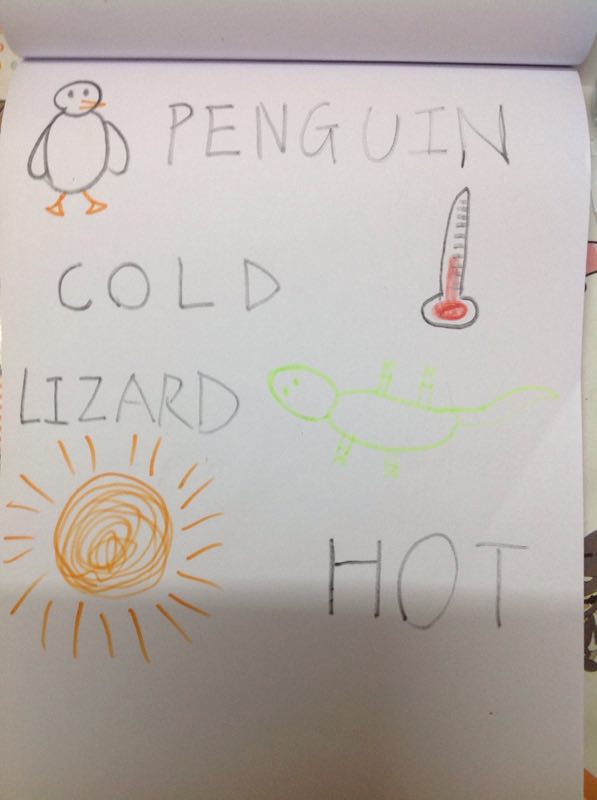 PENGUIN
COLD
LIZARD
HOT